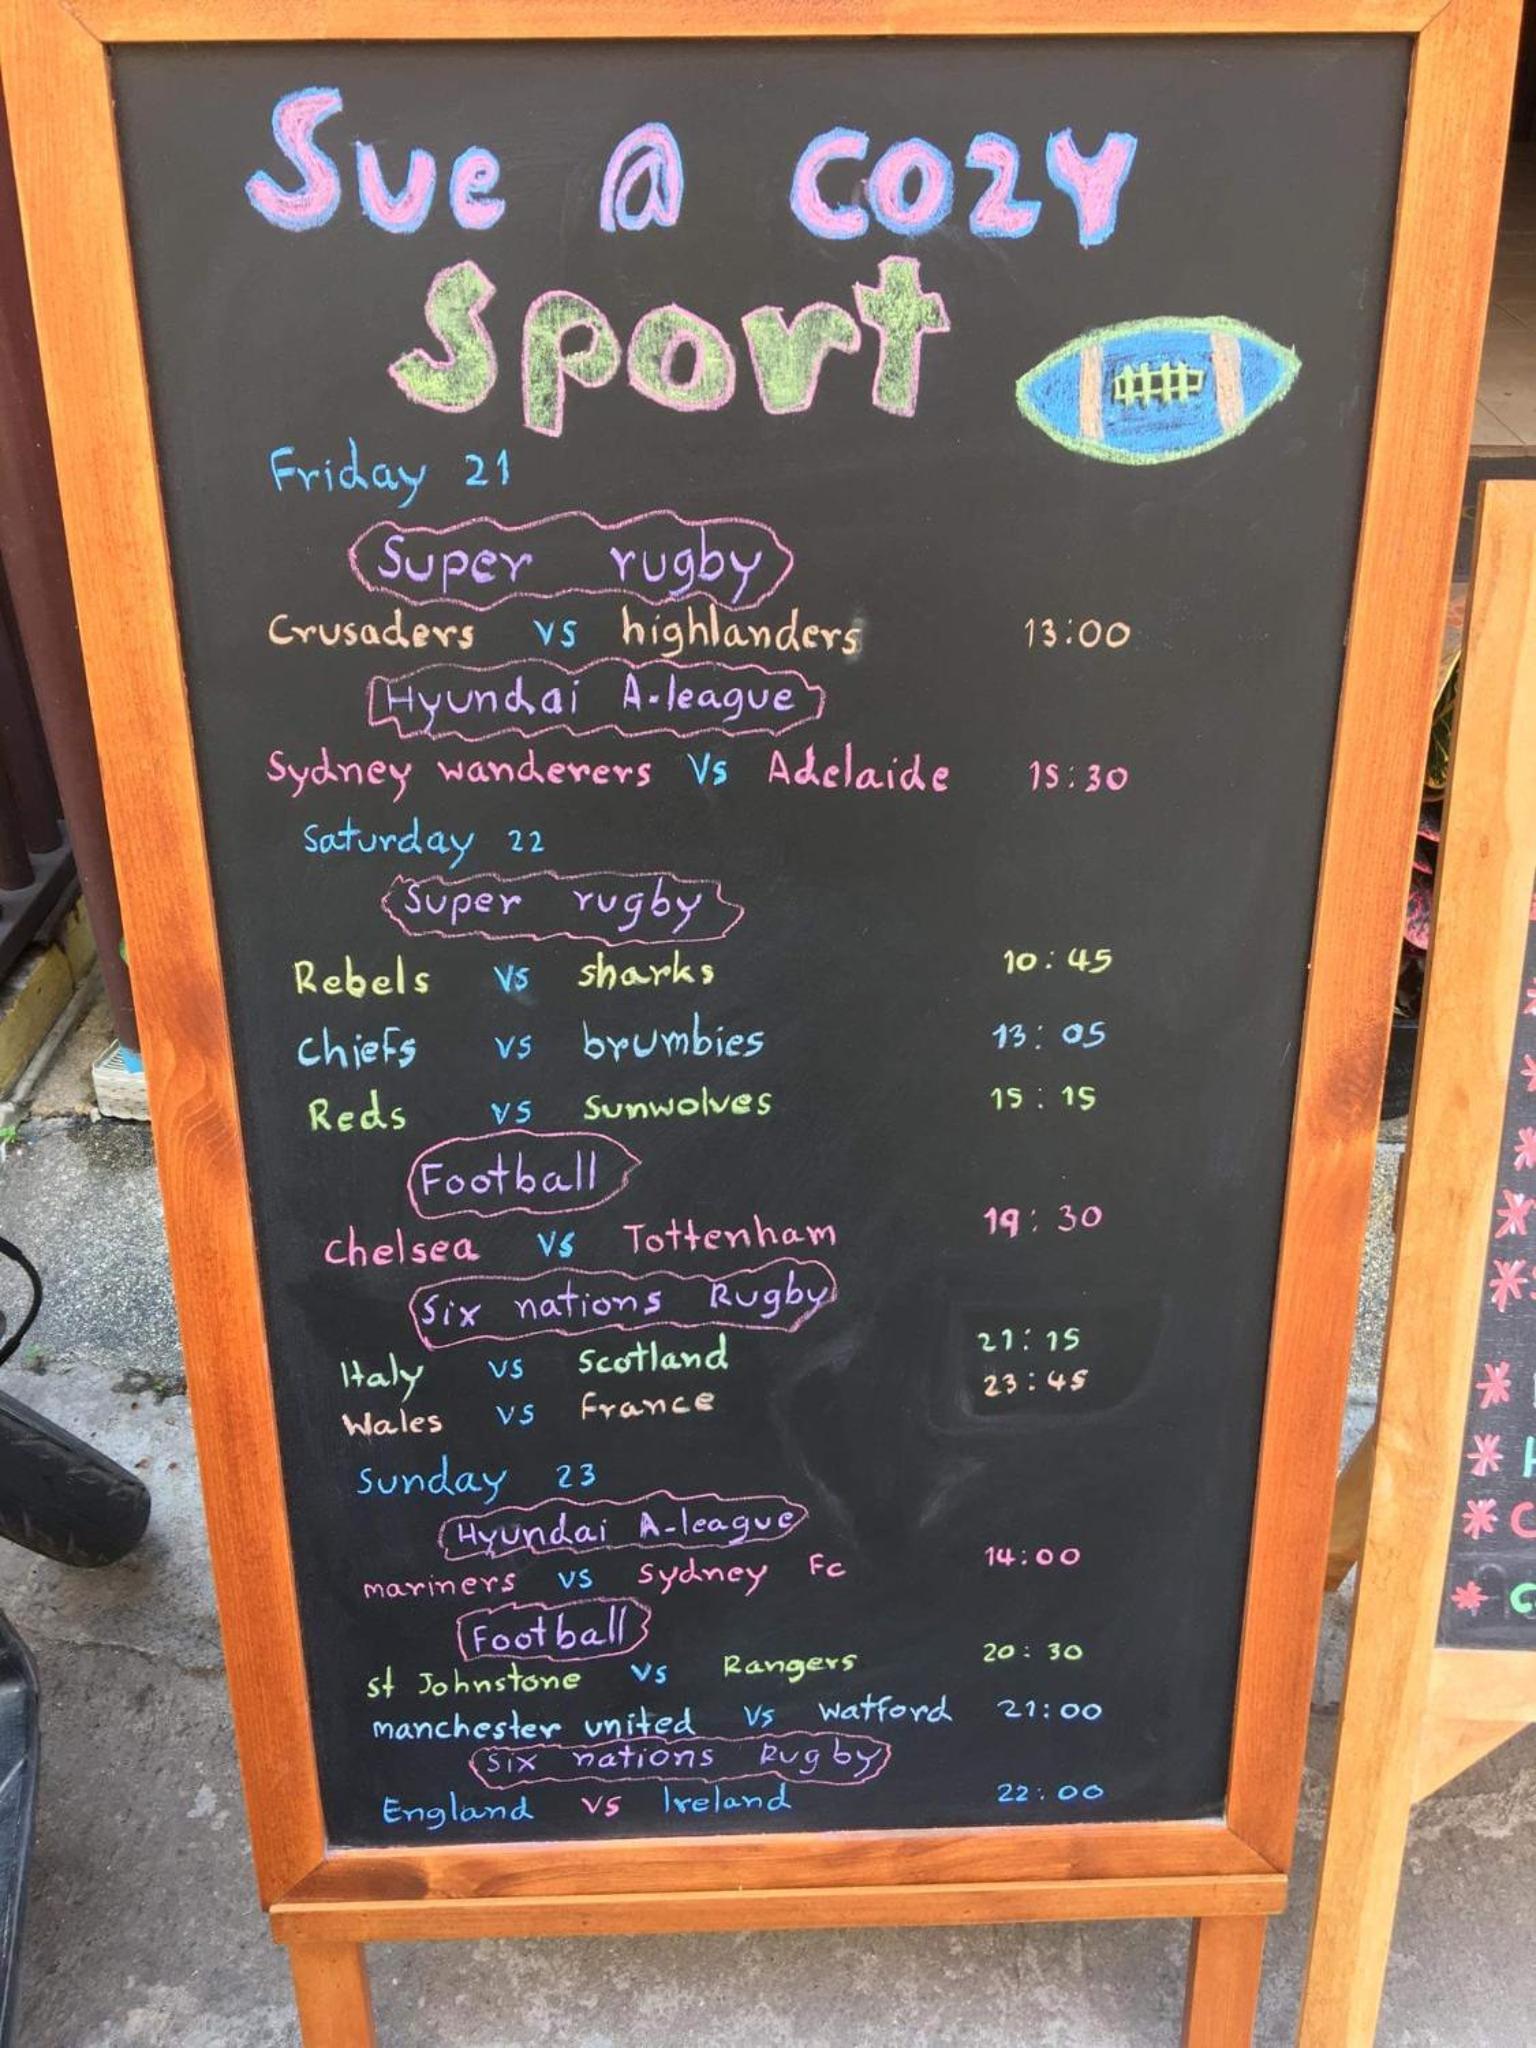 Sue @ cozy
Sport
Friday 21
Super rugby
Crusaders vs highlanders 13:00
Hyundai A-league
Sydney wanderers Vs Adelaide 15:30
Saturday 22
Super rugby
Rebels vs sharks 10:45
chiefs vs brumbies 13:05
Reds vs sunwolves 15:15
Football
chelsea vs Tottenham 19:30
Six nations Rugby
Italy vs Scotland 21:15
Wales vs France 23:45
Sunday 23
Hyundai A-league
mariners vs sydney Fc 14:00
Football
st Johnstone vs Rangers 20:30
manchester united vs watford 21:00
six nations Rugby
England vs Ireland 22:00